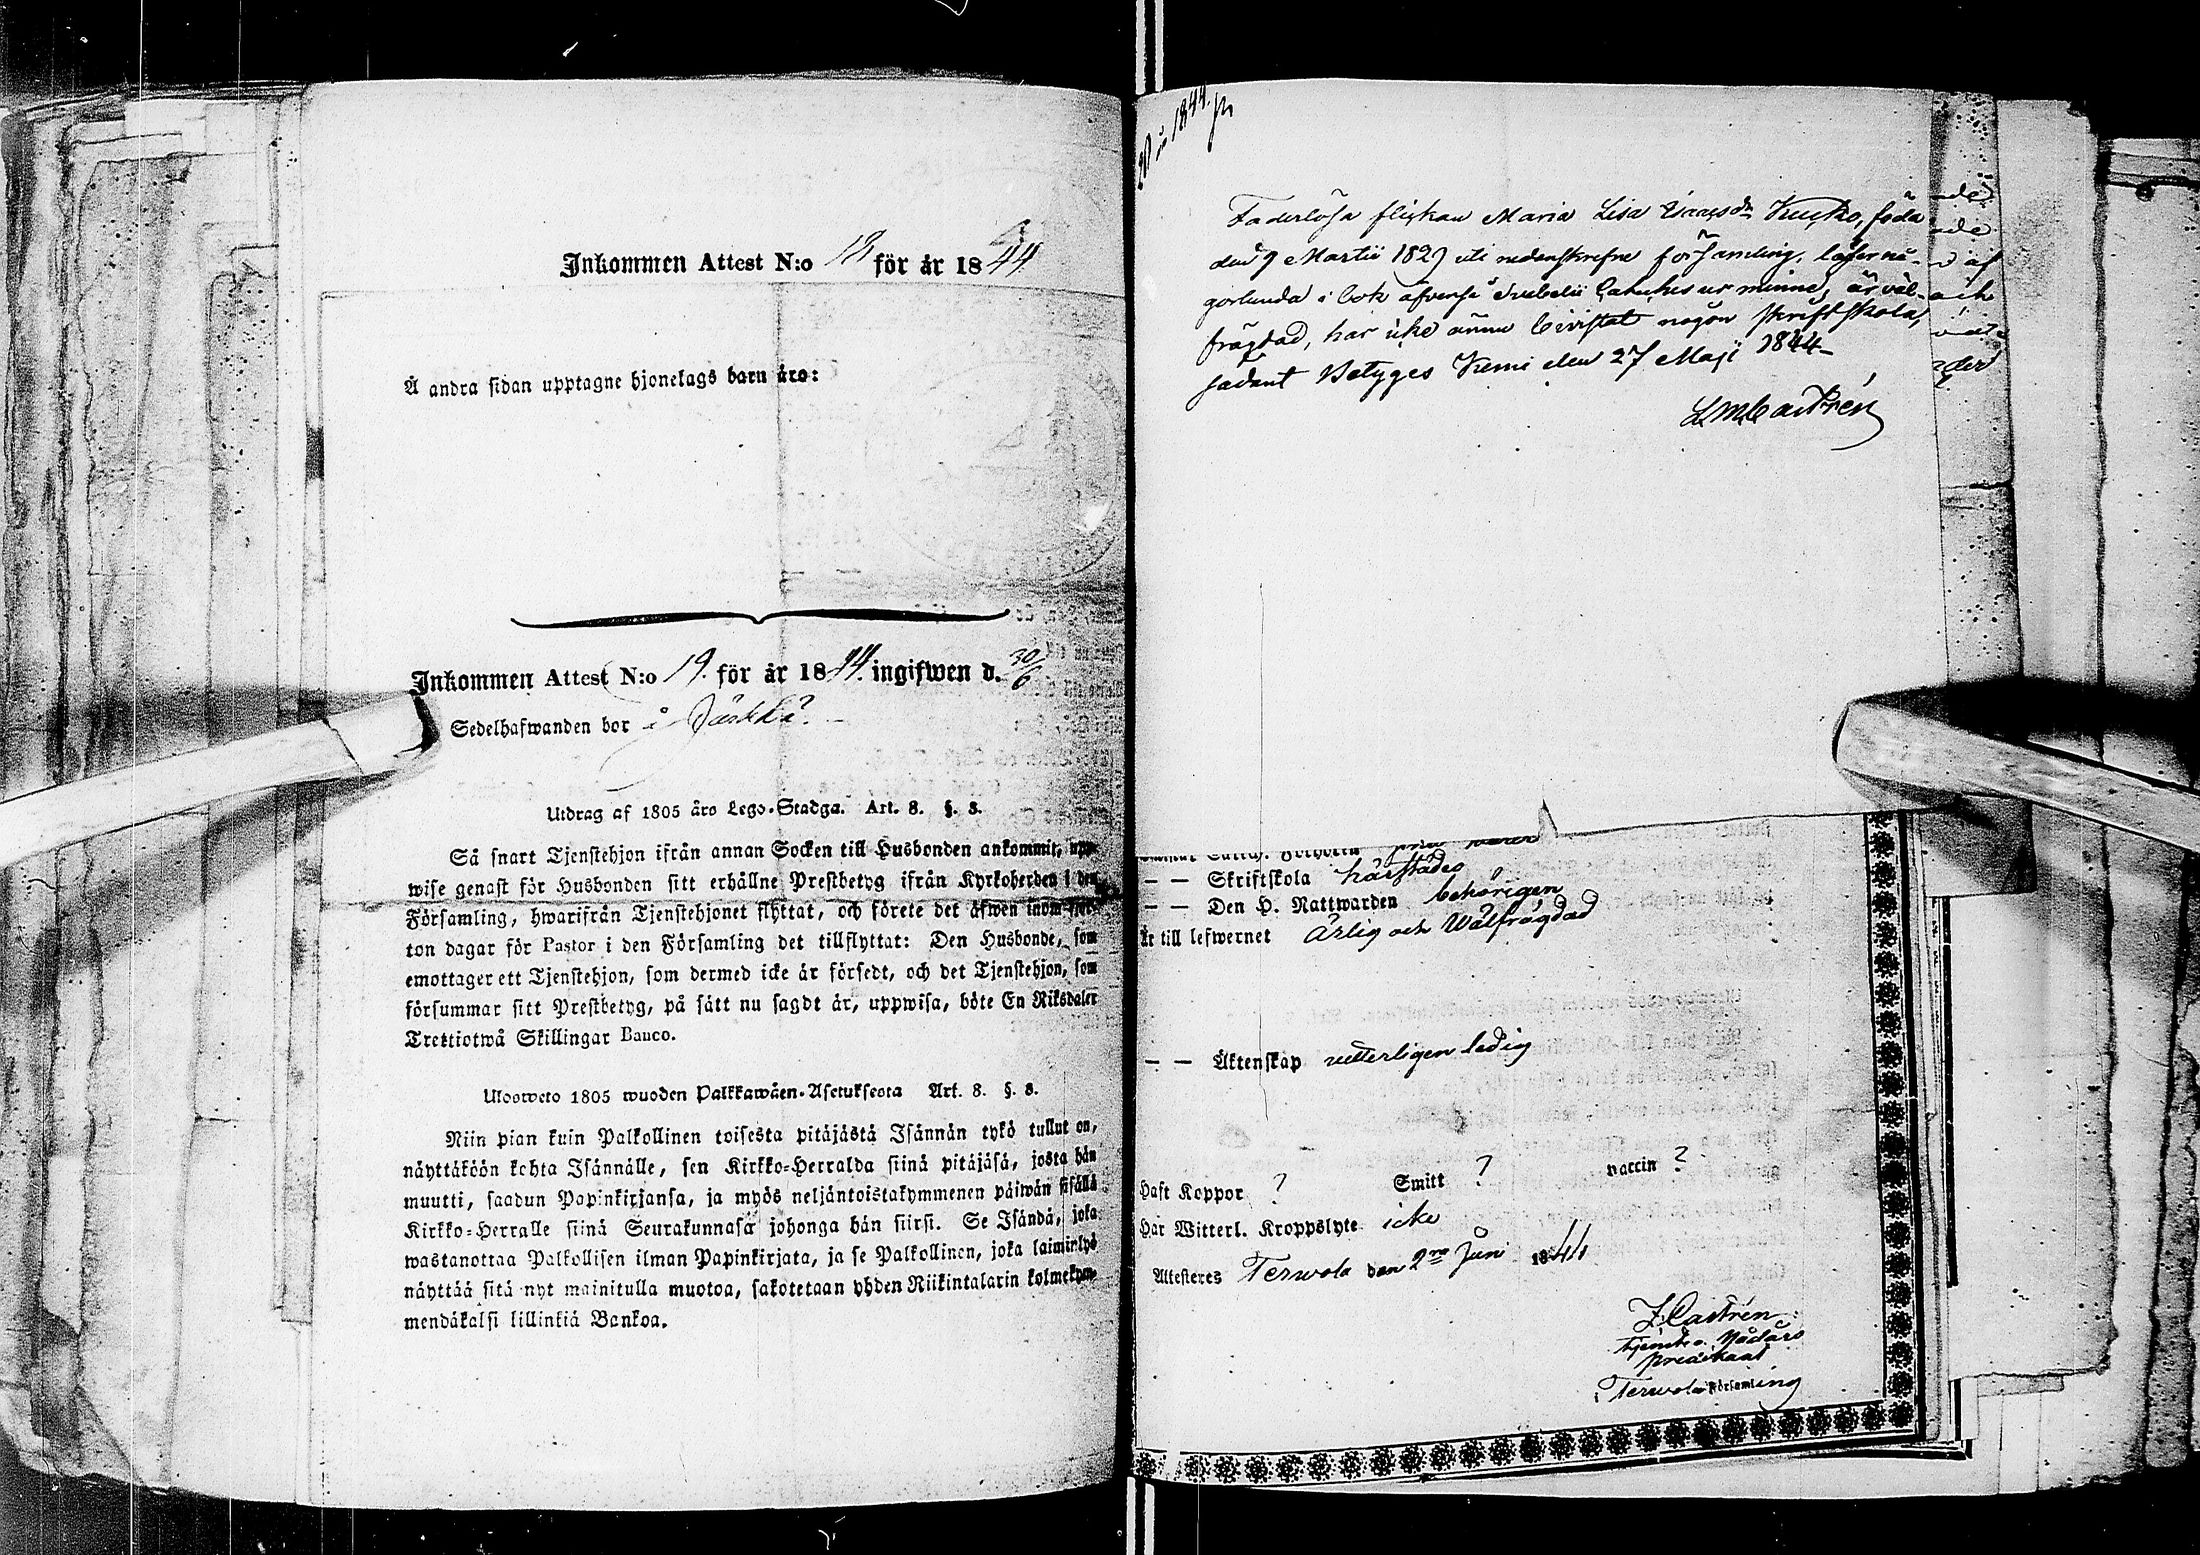 Inkommen Attest N:o 19 för år 1844
Å andra sidan upptagne hjonelags barn äro:
Inkommen Attest N:o 19. för år 1844. ingifwen d. 30/6
Sedelhafwanden bor å
Utdrag af 1805 års Lego-Stadga. Art. 8. §. 3.
Så snart Tjenstehjon ifrån annan Socken till Husbonden ankommit, upp-
wise genast för Husbonden sitt erhållne Prestbetyg ifrån Kyrkoherden i den
Församling, hwarifrån Tjenstehjonet flyttat, och förete det äfwen inom fjor-
ton dagar för Pastor i den Församling det tillflyttat: Den Husbonde, som
emottager ett Tjenstehjon, som dermed icke är försedt, och det Tjenstehjon, som
försummar sitt Prestbetyg, på sätt nu sagdt är, uppwisa, böte En Riksdaler
Trettiotwå Skillingar Banco.
Uloswето 1805 wuoden Palkkawäen-Asetuksesta Art. 8. §. 3.
Niin pian kuin Palkollinen toisesta pitäjästä Isännän tykö tullut on,
näyttäköön kohta Isännälle, sen Kirkko-Herralda siinä pitäjäsä, josta hän
muutti, saadun Papinkirjansa, ja myös neljäntoistakymmenen päiwän sisällä
Kirkko-Herralle siinä Seurakunnasa johonga hän siirsi. Se Isändä, joka
wastanottaa Palkollisen ilman Papinkirjata, ja se Palkollinen, joka laiminlyö
näyttää sitä nyt mainitulla muotoa, sakotetaan yhden Riikintalarin kolmekym-
mendäkaksi killinkiä Bankoa.
20 in 1844.
Faderlösa flickan Maria Lisa Isaacsdr Kucko, föda
den 9 Martii 1829 uti nedanskrefne församling, läser nå-
gorlunda i bok äfvenså Svebelii Catekes ur minne, är väl-
frägdad, har icke ännu bivistat någon skriftskola,
sådant betyges Kemi den 27 Maji 1844
LMCastrén
Skriftskola härstädes
Den H. Nattwarden behörigen
Är till lefwernet Ärlig och Wälfrägdad
Äktenskap witterligen ledig
Haft Koppor ? Smitt ? vaccin ?
Har Witterl. Kroppslyte icke
Attesteres Terwola den 2ne Juni 1844
J Castrén
tjenst. v. Nådårs
predikant
i Terwola Församling